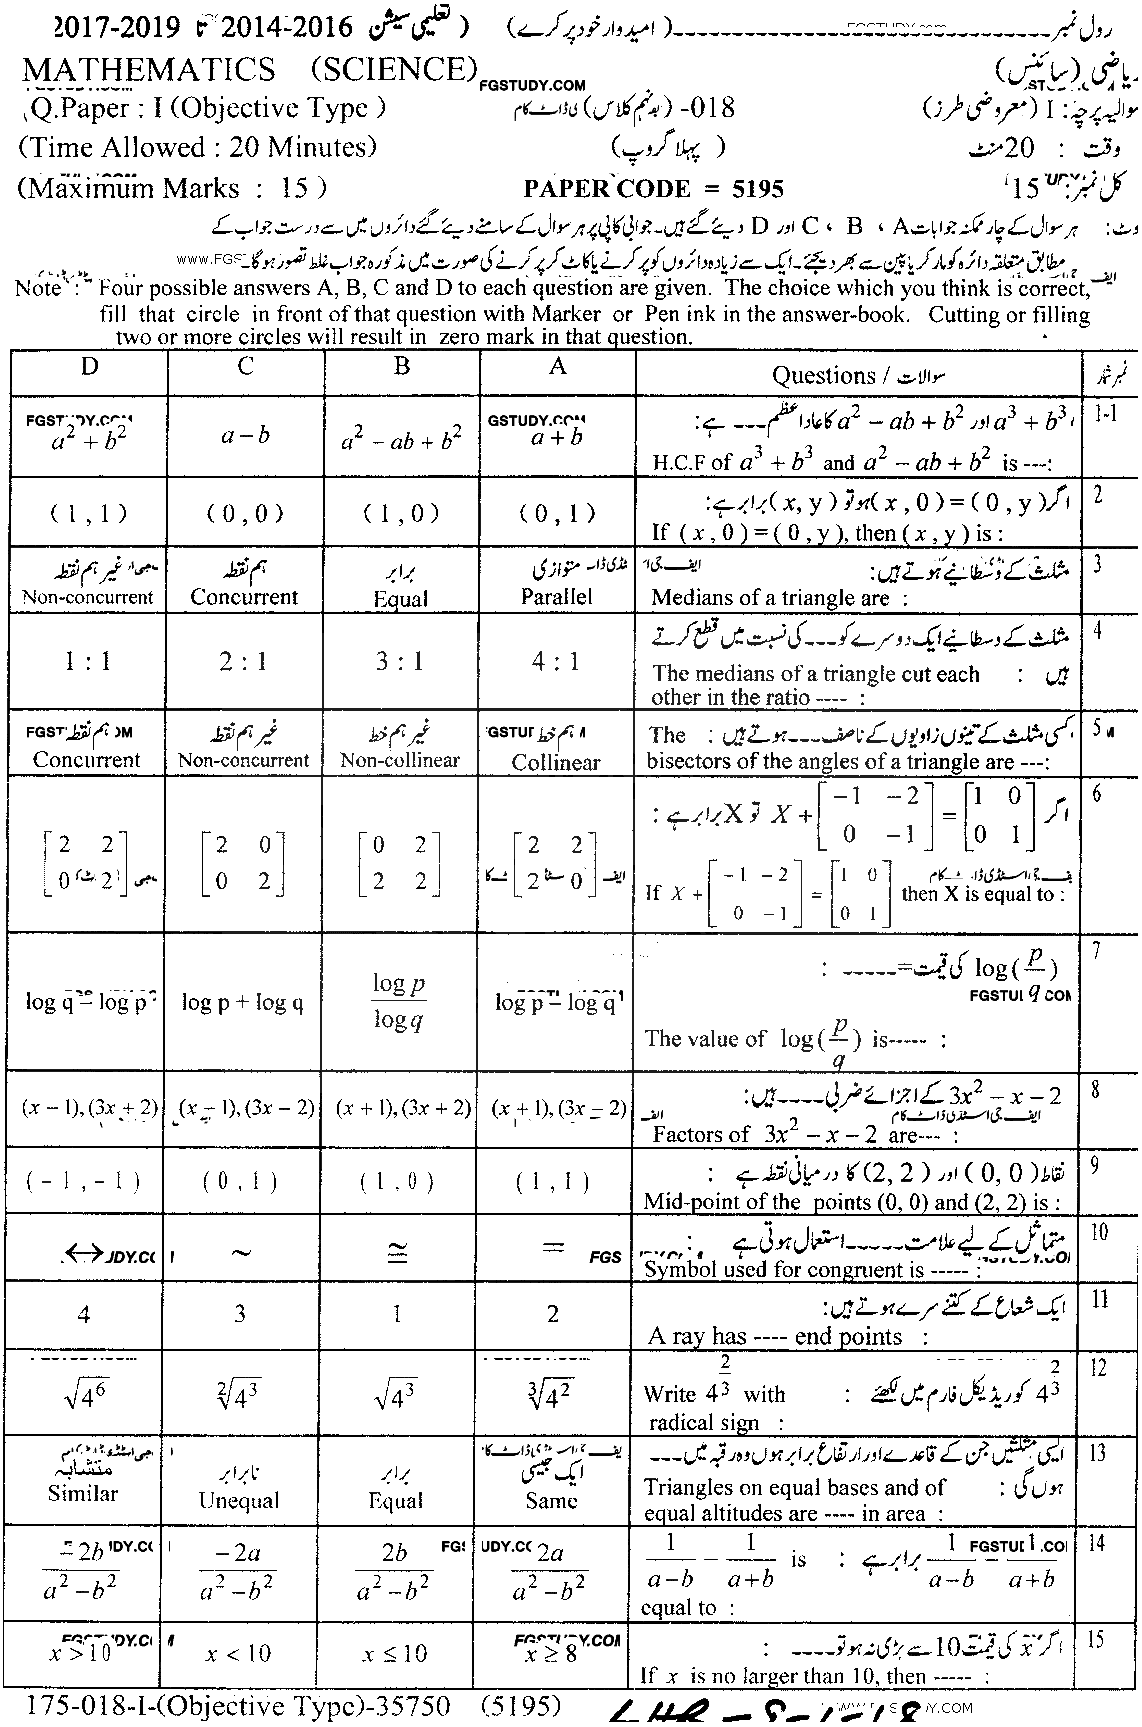 رول نمبر ــــــــــــــــــــــــــــــــــــــــ (امیدوار خود پر کرے) (تعلیمی سیشن 2016-2014 تا 2019-2017)
MATHEMATICS (SCIENCE) FGSTUDY.COM ریاضی (سائنس)
Q.Paper : I (Objective Type) 018- (نہم کلاس) سوالیہ پرچہ : I (معروضی طرز)
(Time Allowed : 20 Minutes) (پہلا گروپ) وقت : 20 منٹ
(Maximum Marks : 15) PAPER CODE = 5195 کل نمبر : 15
نوٹ: ہر سوال کے چار ممکنہ جوابات A ، B ، C اور D دیئے گئے ہیں۔ جوابی کاپی پر ہر سوال کے سامنے دیئے گئے دائروں میں سے درست جواب کے
مطابق متعلقہ دائرہ کو مارکر یا پین سے بھر دیجئے۔ ایک سے زیادہ دائروں کو پر کرنے یا کاٹ کر پر کرنے کی صورت میں مذکورہ جواب غلط تصور ہوگا۔
Note : Four possible answers A, B, C and D to each question are given. The choice which you think is correct,
fill that circle in front of that question with Marker or Pen ink in the answer-book. Cutting or filling
two or more circles will result in zero mark in that question.
D C B A Questions / سوالات نمبر شمار
1-1 a³ + b³ اور a² − ab + b² کا عاد اعظم ---- ہے:
H.C.F of a³ + b³ and a² − ab + b² is ---:
a² + b² a − b a² − ab + b² a + b
2 اگر (x , 0) = (0 , y) ہو تو (x, y) برابر ہے:
If (x , 0) = (0 , y), then (x , y) is :
(1 , 1) (0 , 0) (1 , 0) (0 , 1)
3 مثلث کے وسطانیے ہوتے ہیں:
Medians of a triangle are :
غیر ہم نقطہ ہم نقطہ برابر متوازی
Non-concurrent Concurrent Equal Parallel
4 مثلث کے وسطانیے ایک دوسرے کو ---- کی نسبت میں قطع کرتے
ہیں :
The medians of a triangle cut each
other in the ratio ---- :
1 : 1 2 : 1 3 : 1 4 : 1
5 کسی مثلث کے تینوں زاویوں کے ناصف ---- ہوتے ہیں :
The
bisectors of the angles of a triangle are ---:
ہم نقطہ غیر ہم نقطہ غیر ہم خط ہم خط
Concurrent Non-concurrent Non-collinear Collinear
6 اگر X + [−1 −2; 0 −1] = [1 0; 0 1] تو X برابر ہے :
If X + [−1 −2; 0 −1] = [1 0; 0 1] then X is equal to :
[2 2; 0 2] [2 0; 0 2] [0 2; 2 2] [2 2; 2 0]
7 log(p/q) کی قیمت = ----- :
The value of log(p/q) is----- :
log q − log p log p + log q log p / log q log p − log q
8 3x² − x − 2 کے اجزائے ضربی ---- ہیں:
Factors of 3x² − x − 2 are--- :
(x − 1), (3x + 2) (x − 1), (3x − 2) (x + 1), (3x + 2) (x + 1), (3x − 2)
9 نقاط (0, 0) اور (2, 2) کا درمیانی نقطہ ہے :
Mid-point of the points (0, 0) and (2, 2) is :
(−1 , −1) (0 , 1) (1 , 0) (1 , 1)
10 متماثل کے لیے علامت ------ استعمال ہوتی ہے :
Symbol used for congruent is ----- :
↔ ~ ≅ =
11 ایک شعاع کے کتنے سرے ہوتے ہیں:
A ray has ---- end points :
4 3 1 2
12 4^(2/3) کو ریڈیکل فارم میں لکھئے :
Write 4^(2/3) with
radical sign :
√4⁶ ²√4³ √4³ ³√4²
13 ایسی مثلثیں جن کے قاعدے اور ارتفاع برابر ہوں وہ رقبہ میں ----
ہوں گی :
Triangles on equal bases and of
equal altitudes are ---- in area :
متشابہ نابرابر برابر ایک جیسی
Similar Unequal Equal Same
14 1/(a−b) − 1/(a+b) برابر ہے :
1/(a−b) − 1/(a+b) is
equal to :
−2b/(a² − b²) −2a/(a² − b²) 2b/(a² − b²) 2a/(a² − b²)
15 اگر x کی قیمت 10 سے بڑی نہ ہو تو ----- :
If x is no larger than 10, then ----- :
x > 10 x < 10 x ≤ 10 x ≥ 8
175-018-I-(Objective Type)-35750 (5195) LHR-9-1-18